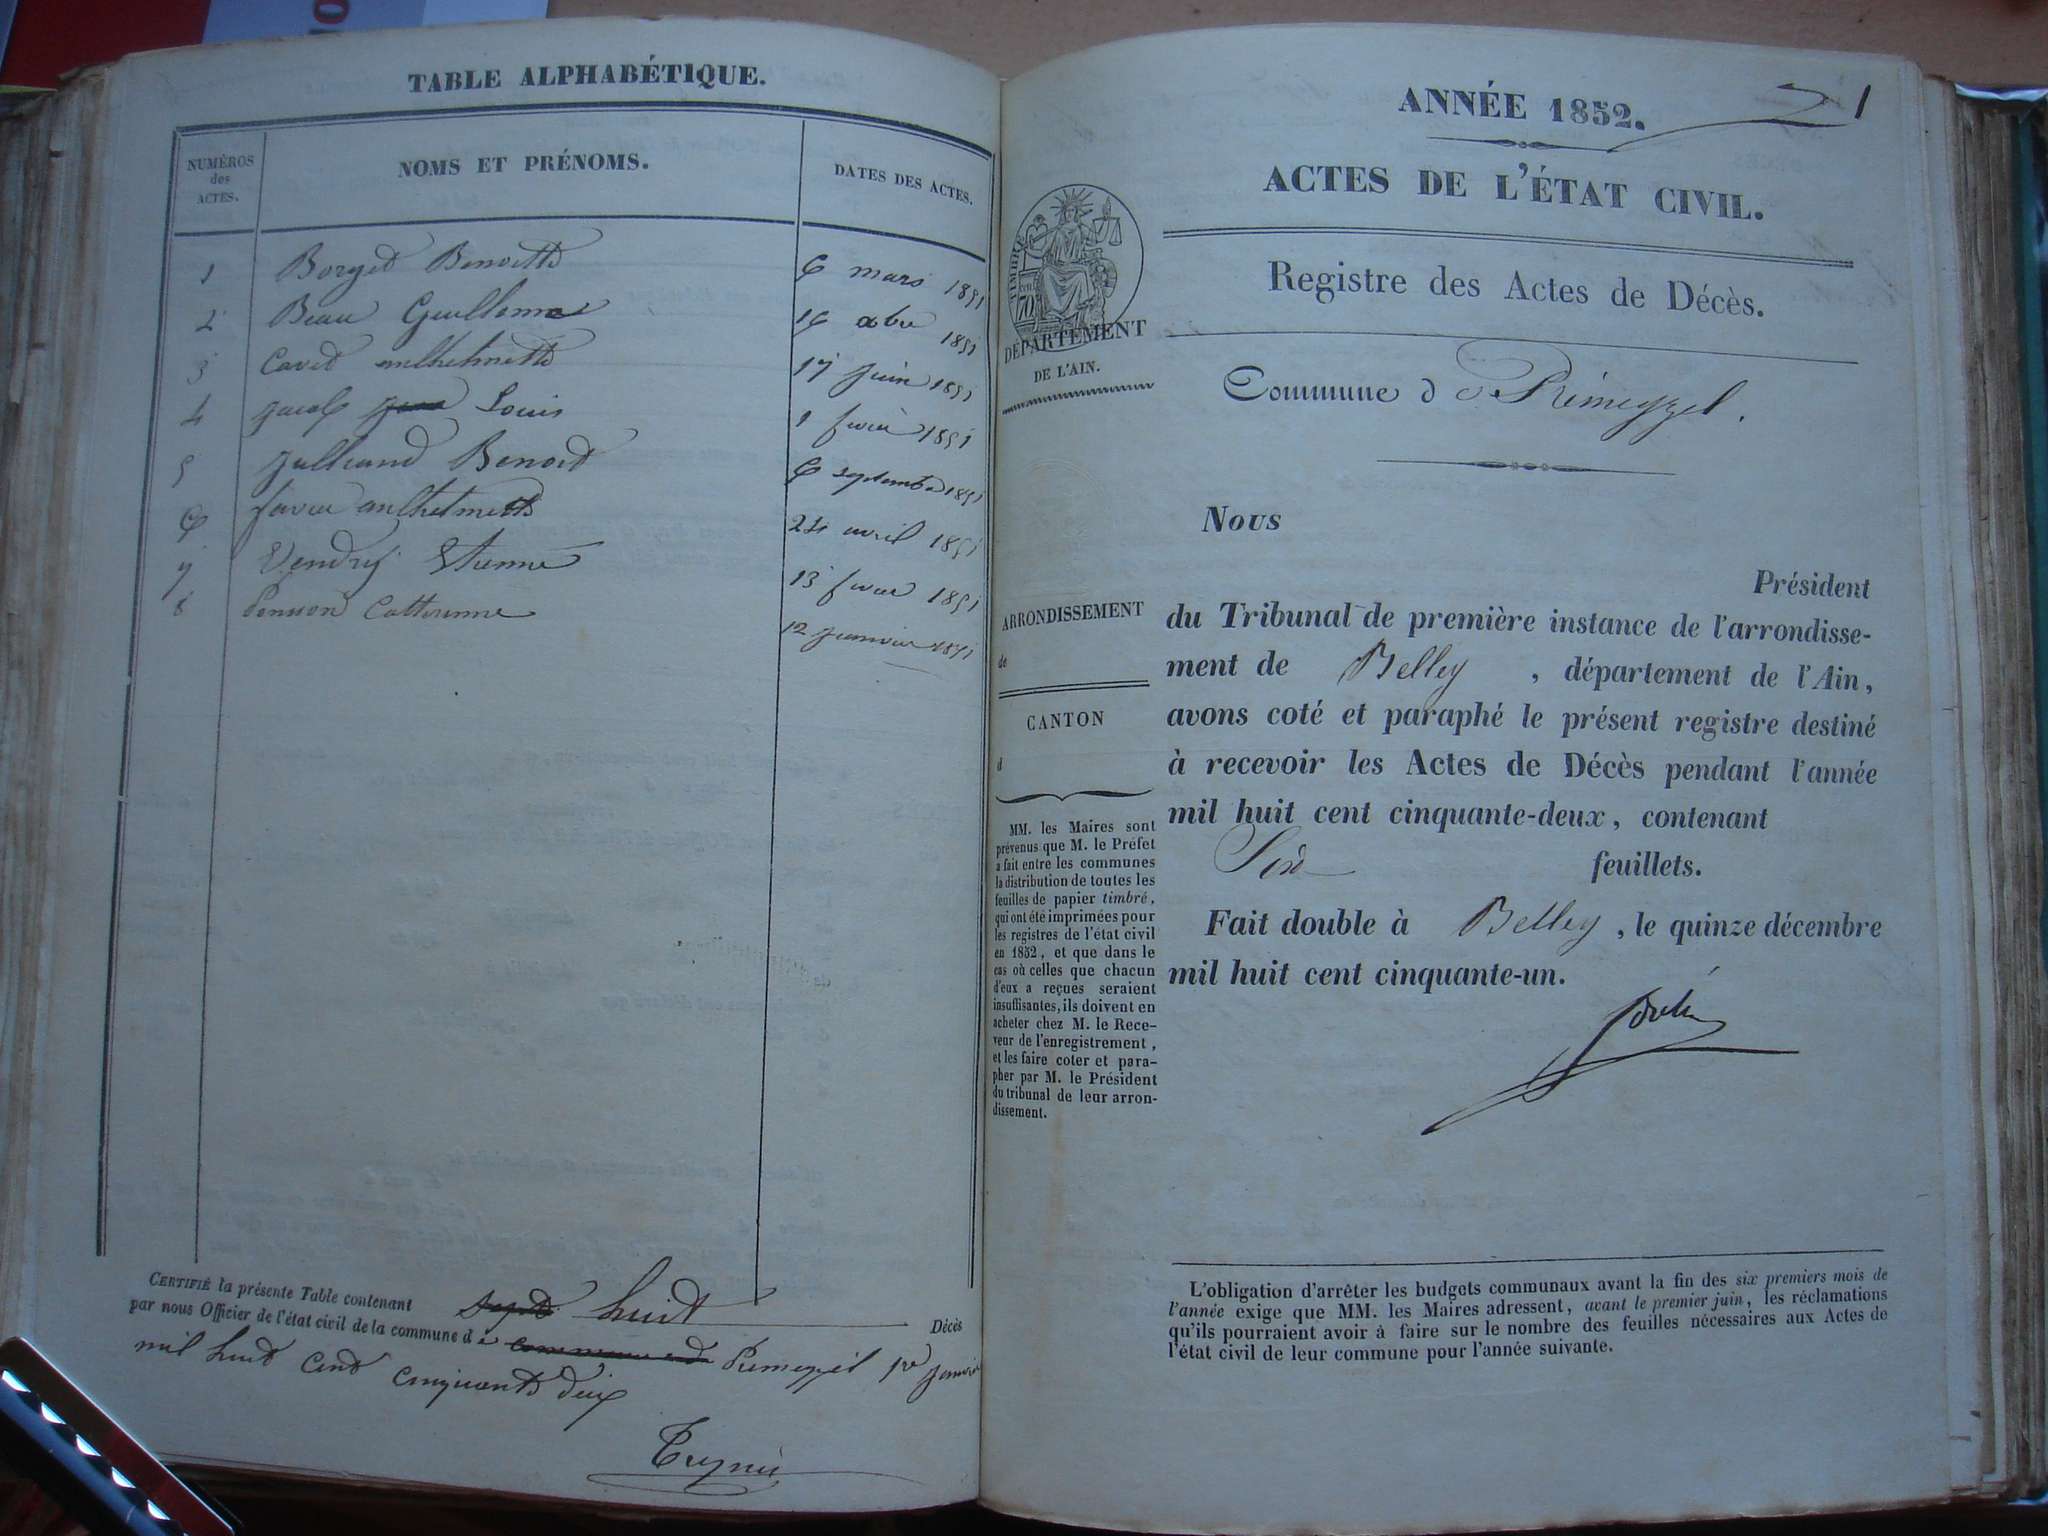 TABLE ALPHABÉTIQUE.
NUMÉROS des ACTES.
NOMS ET PRÉNOMS.
DATES DES ACTES.
1 Borget Benoitte 6 mars 1851
2 Beau Guillaume 16 xbre 1851
3 Cavet anthelmette 17 juin 1851
4 Jacob Louis 1 fevrier 1851
5 Julliand Benoit 6 septembre 1851
6 favier anthelmette 24 avril 1851
7 Etienne 13 fevrier 1851
8 Catherinne 12 janvier 1851
CERTIFIÉ la présente Table contenant sept huit Décès
par nous Officier de l'état civil de la commune de Premeyzel 1er janvier
mil huit cent cinquante deux
ANNÉE 1852.
1
ACTES DE L'ÉTAT CIVIL.
Registre des Actes de Décès.
TIMBRE
70
DÉPARTEMENT
DE L'AIN.
Commune d e Prémeyzel.
Nous
Président
du Tribunal de première instance de l'arrondisse-
ment de Belley, département de l'Ain,
avons coté et paraphé le présent registre destiné
à recevoir les Actes de Décès pendant l'année
mil huit cent cinquante-deux, contenant
Six feuillets.
Fait double à Belley, le quinze décembre
mil huit cent cinquante-un.
ARRONDISSEMENT
de
CANTON
d
MM. les Maires sont
prévenus que M. le Préfet
a fait entre les communes
la distribution de toutes les
feuilles de papier timbré,
qui ont été imprimées pour
les registres de l'état civil
en 1852, et que dans le
cas où celles que chacun
d'eux a reçues seraient
insuffisantes, ils doivent en
acheter chez M. le Rece-
veur de l'enregistrement,
et les faire coter et para-
pher par M. le Président
du tribunal de leur arron-
dissement.
L'obligation d'arrêter les budgets communaux avant la fin des six premiers mois de
l'année exige que MM. les Maires adressent, avant le premier juin, les réclamations
qu'ils pourraient avoir à faire sur le nombre des feuilles nécessaires aux Actes de
l'état civil de leur commune pour l'année suivante.